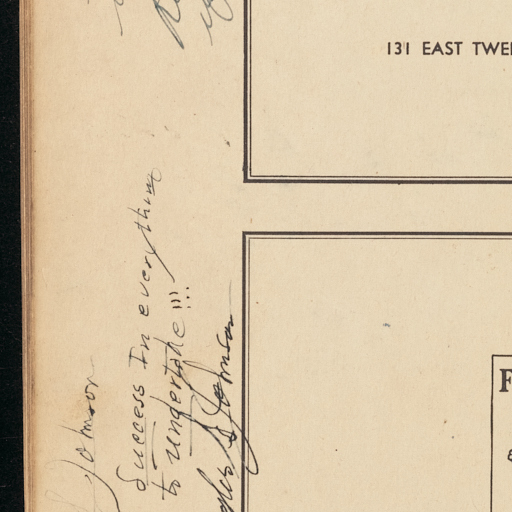 131 EAST
Johnson
Success In everything
to undertake!!!
Johnson
F